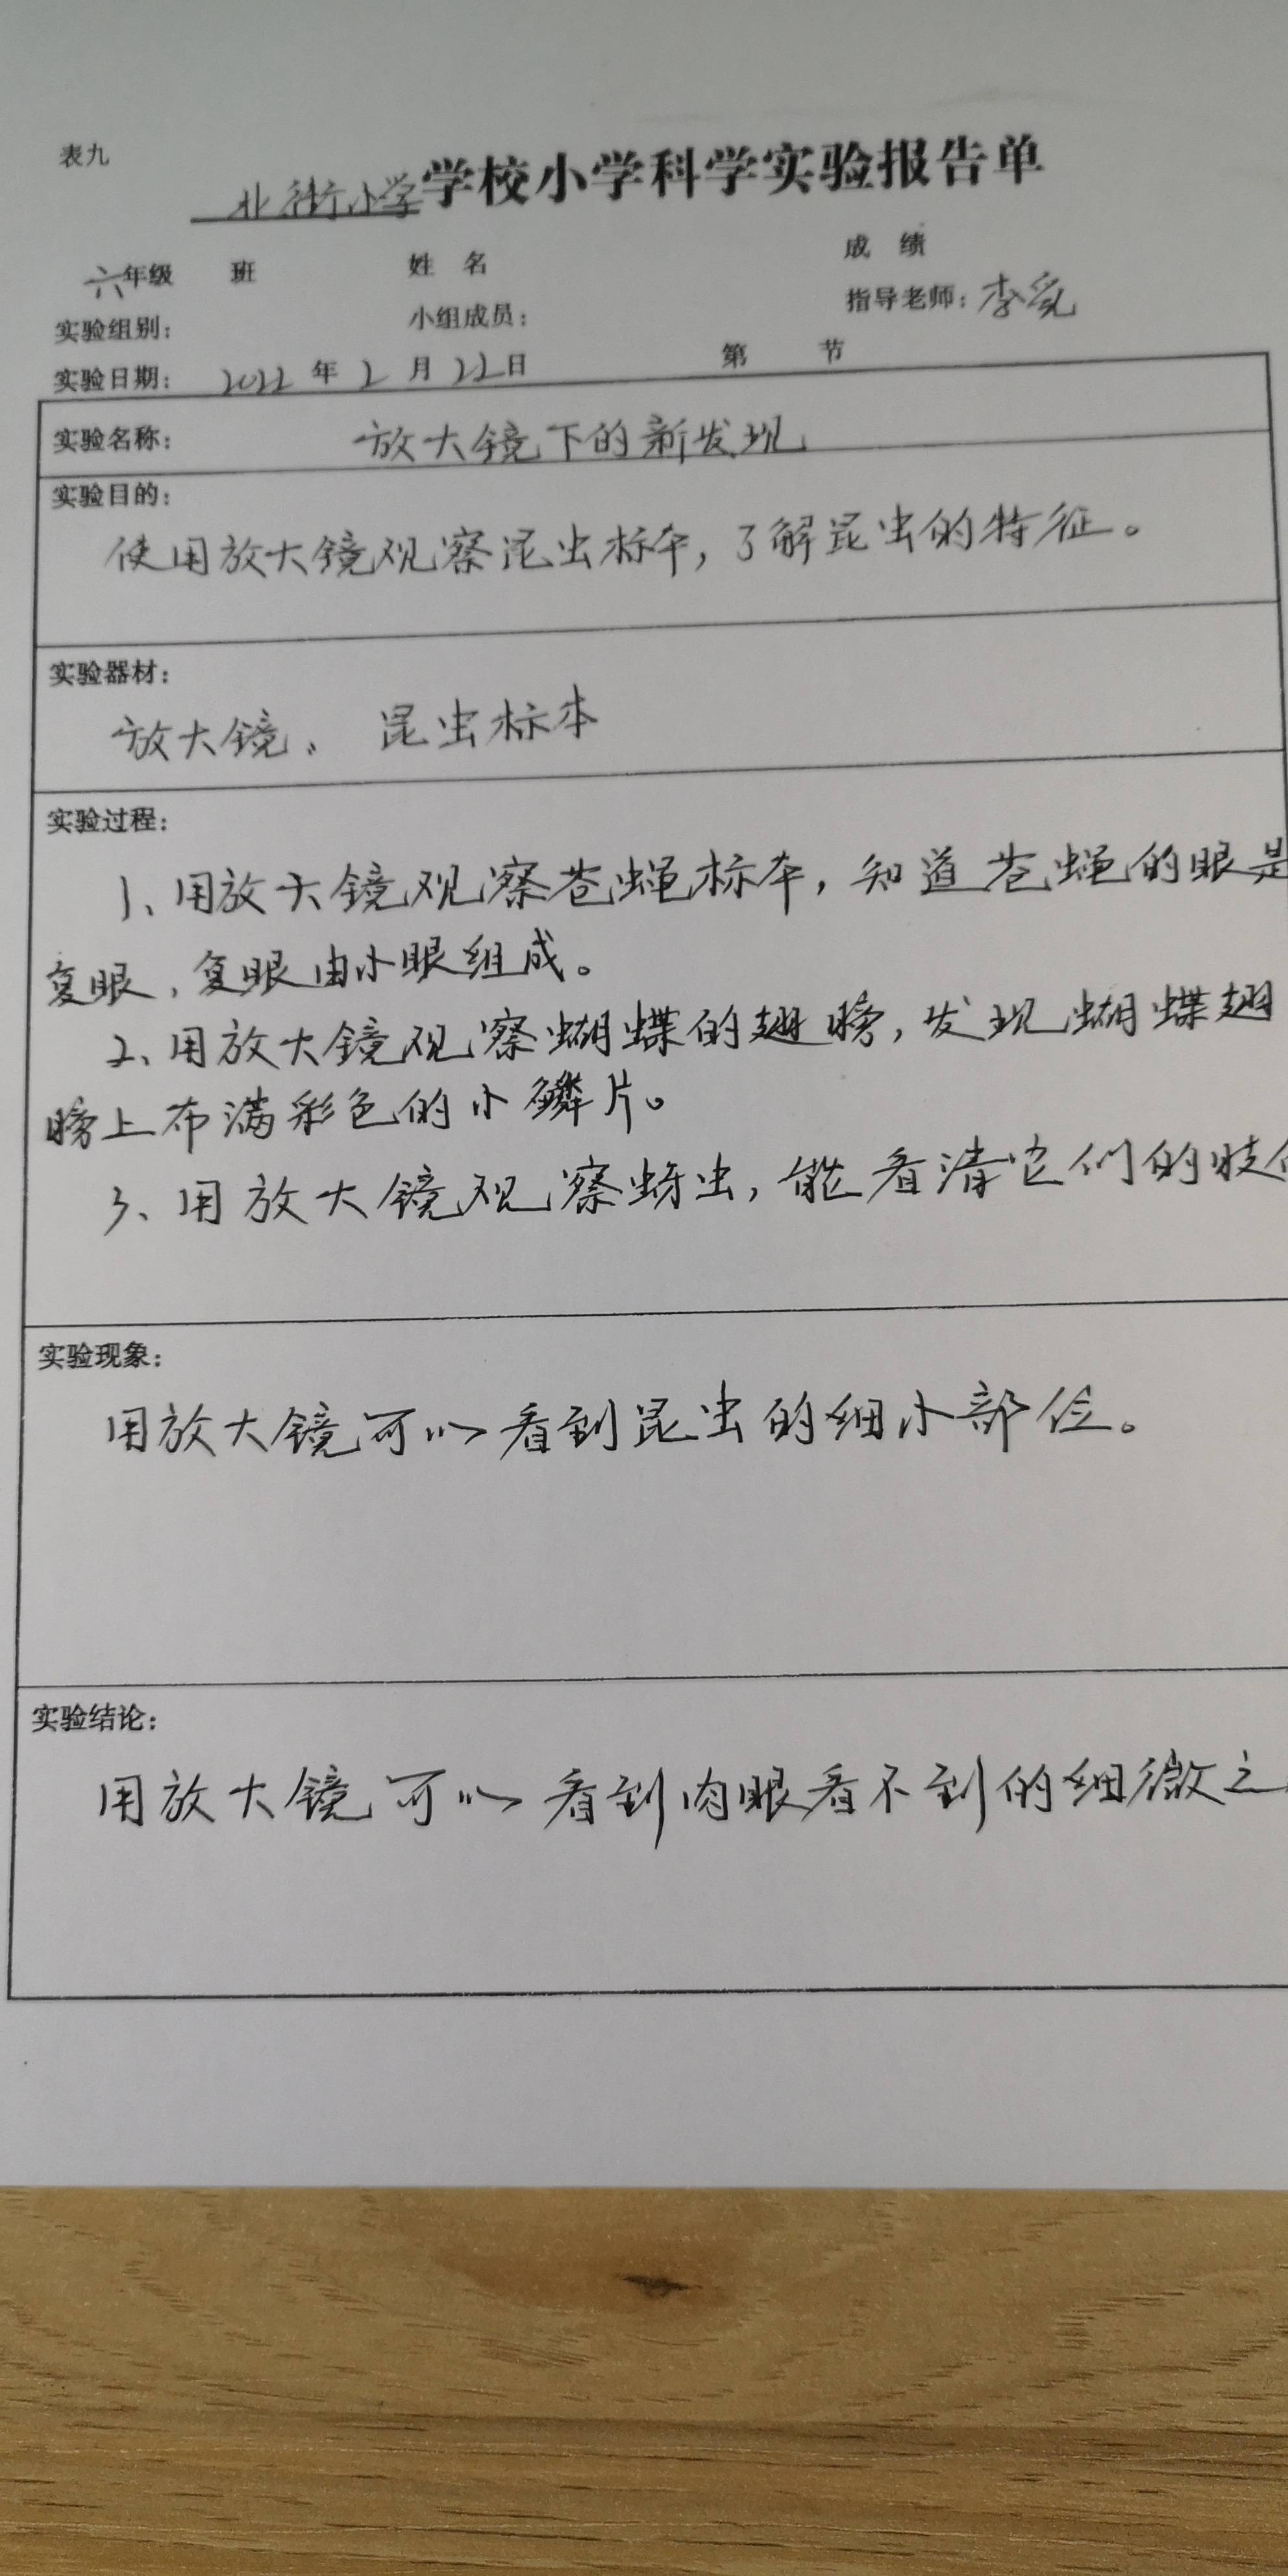 表九
北街小学学校小学科学实验报告单
六年级 班 姓名 成绩
实验组别： 小组成员： 指导老师：李
实验日期： 2022 年 2 月 22日 第 节
实验名称： 放大镜下的新发现
实验目的：
使用放大镜观察昆虫标本，了解昆虫的特征。
实验器材：
放大镜、昆虫标本
实验过程：
1、用放大镜观察苍蝇标本，知道苍蝇的眼是
复眼，复眼由小眼组成。
2、用放大镜观察蝴蝶的翅膀，发现蝴蝶翅
膀上布满彩色的小鳞片。
3、用放大镜观察蚜虫，能看清它们的肢
实验现象：
用放大镜可以看到昆虫的细小部位。
实验结论：
用放大镜可以看到肉眼看不到的细微之